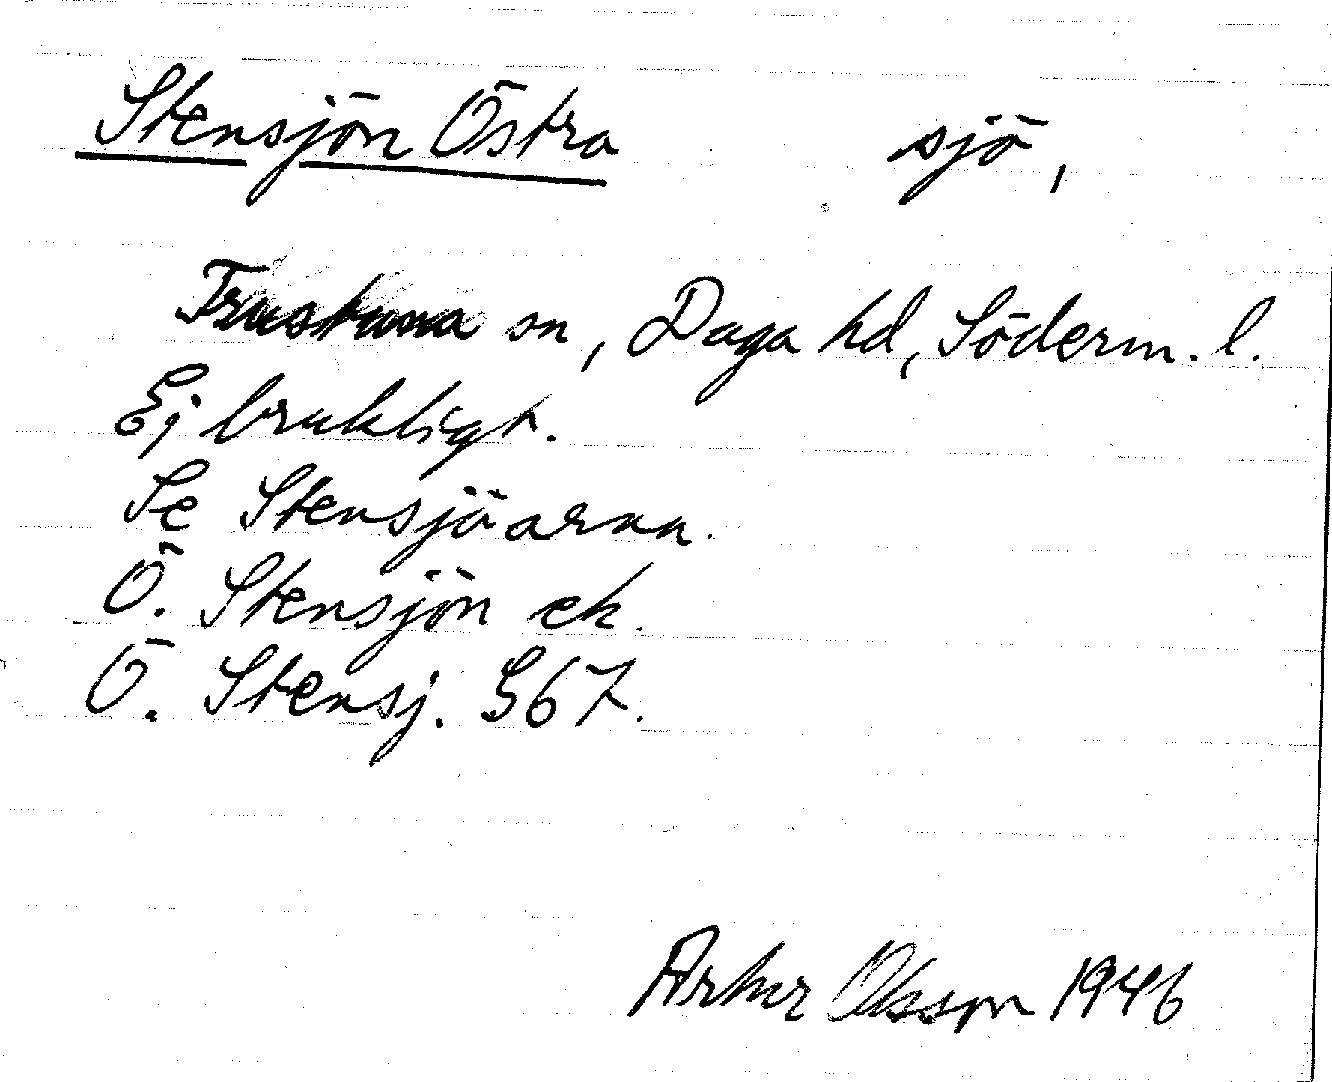 Stensjön Östra sjö,
Frustuna sn, Daga hd, Söderm. l.
Ej brukligt.
Se Stensjöarna.
Ö. Stensjön ek.
Ö. Stensj. S67.
Artur Olsson 1946